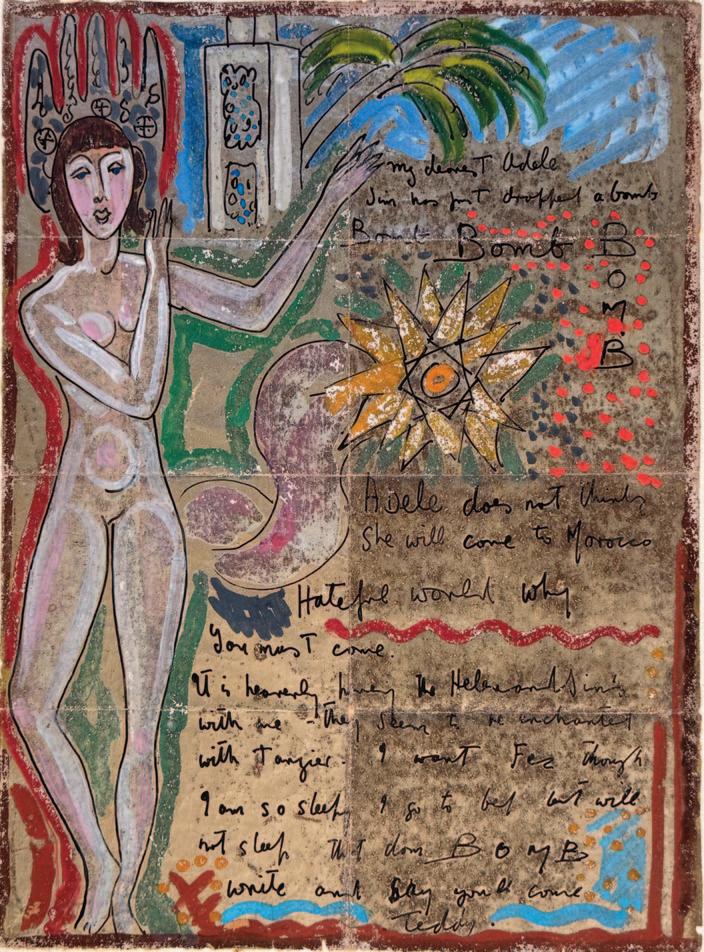 my dearest Adele
Jim has just dropped a bomb
Bomb Bomb B
O
M
B
Adele does not think
she will come to Morocco
Hateful world why
You must come.
It is heavenly having the Helen and Jim's
with me - they seem to be enchanted
with Tangier. I want Fez though
I am so sleepy I go to bed but will
not sleep that damn BOMB
write and say you'll come
Teddy.